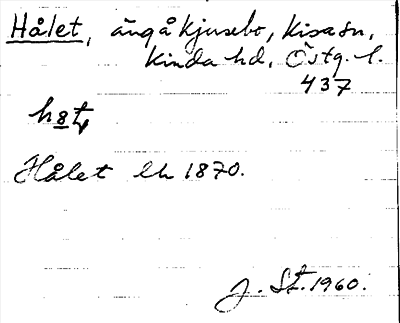 Hålet, äng å Kjusebo, Kisa sn,
Kinda hd, Östg. l.
437
Hålet lh 1870.
J. St. 1960.